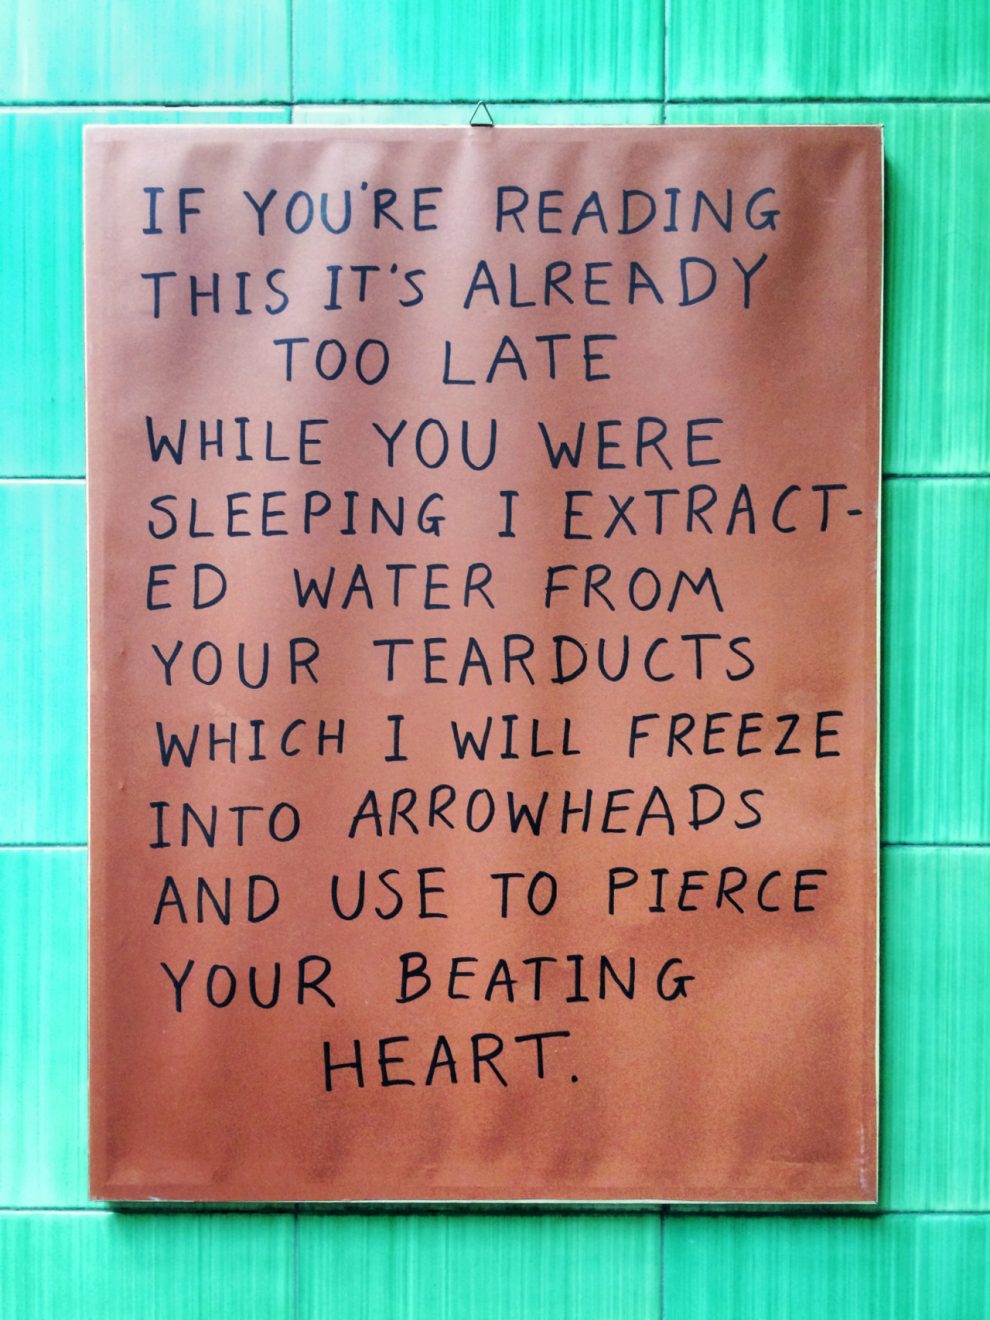 IF YOU'RE READING
THIS IT'S ALREADY
TOO LATE
WHILE YOU WERE
SLEEPING I EXTRACT-
ED WATER FROM
YOUR TEARDUCTS
WHICH I WILL FREEZE
INTO ARROWHEADS
AND USE TO PIERCE
YOUR BEATING
HEART.